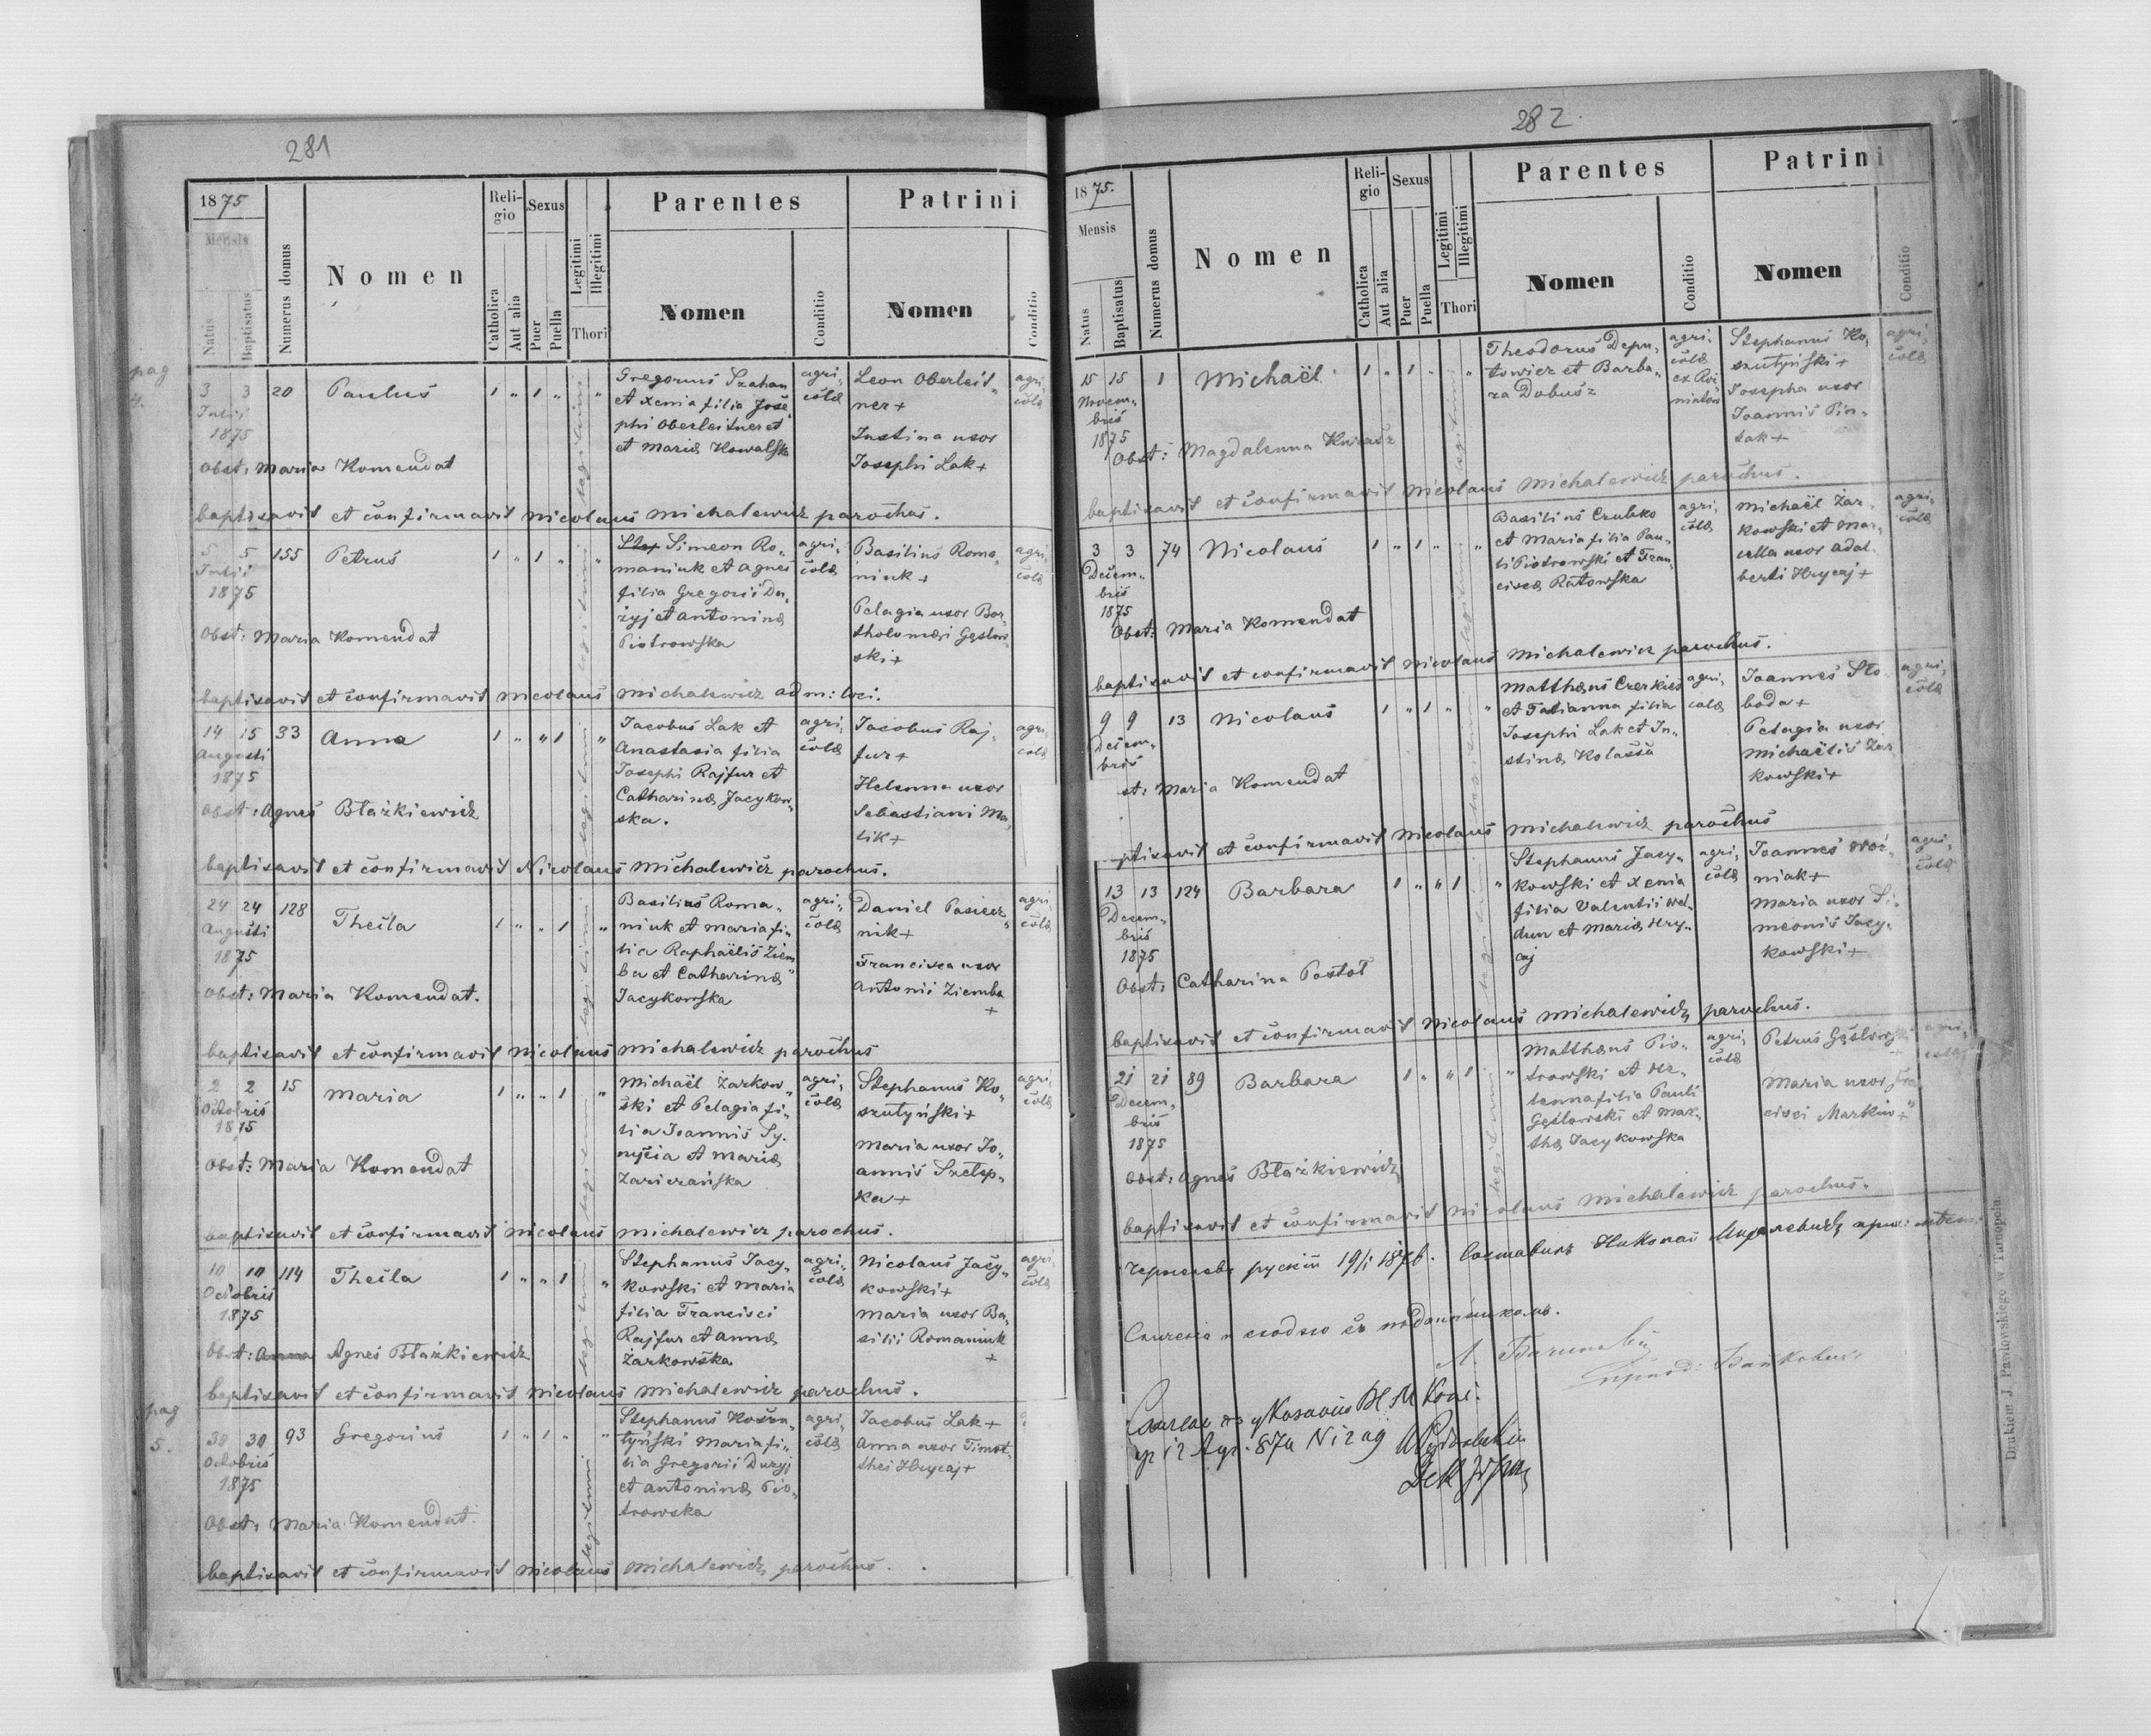 281
1875
Mensis
Natus
Baptisatus
Numerus domus
Nomen
Religio
Catholica
Aut alia
Sexus
Puer
Puella
Legitimi
Illegitimi
Thori
Parentes
Nomen
Conditio
Patrini
Nomen
Conditio
pag
4.
3 3 20 Paulus 1 „ 1 „ „
Julii
1875
legitimi
Gregorius Szahan
et Xenia filia Jose
phi Oberleitner et
et Mariæ Kowalska
agri„
colæ
Leon Oberleit„
ner +
Justina uxor
Josephi Lak +
agri„
colæ
Obst: Maria Komendat
baptisavit et confirmavit Nicolaus Michalewicz parochus.
5 5 155 Petrus 1 „ 1 „ „
Julii
1875
legitimi
Simeon Ro„
maniuk et Agnes
filia Gregorii Du„
żyj et Antoninæ
Piotrowska
agri„
colæ
Basilius Roma„
niuk +
Pelagia uxor Bar„
tholomæi Gęslow
ski +
agri„
colæ
Obst: Maria Komendat
baptisavit et confirmavit Nicolaus Michalewicz adm: loci.
14 15 33 Anna 1 „ „ 1 „
Augusti
1875
legitimi
Jacobus Lak et
Anastasia filia
Josephi Rajfur et
Catharinæ Jacykow„
ska.
agri„
colæ
Jacobus Raj„
fur +
Helenna uxor
Sebastiani Ma„
lik +
agri„
colæ
Obst: Agnes Błażkiewicz
baptisavit et confirmavit Nicolaus Michalewicz parochus.
24 24 128 Thecla 1 „ „ 1 „
Augusti
1875
legitimi
Basilius Roma„
niuk et Maria fi„
lia Raphaëlis Ziem
ba et Catharinæ
Jacykowska
agri„
colæ
Daniel Pasiecz„
nik +
Francisca uxor
Antonii Ziemba
+
agri„
colæ
Obst: Maria Komendat.
baptisavit et confirmavit Nicolaus Michalewicz parochus
2 2 15 Maria 1 „ „ 1 „
Octobris
1875
legitimi
Michaël Żarkow„
ski et Pelagia fi„
lia Joannis Sy„
et Mariæ
agri„
colæ
Stephanus Ko„
szutyński +
Maria uxor Jo„
annis Szelep„
ka +
agri„
colæ
Obst: Maria Komendat
baptisavit et confirmavit Nicolaus Michalewicz parochus.
10 10 114 Thecla 1 „ „ 1 „
Octobris
1875
legitimi
Stephanus Jacy„
kowski et Maria
filia Francisci
Rajfur et Annæ
Żarkowska
agri„
colæ
Nicolaus Jacy„
kowski +
Maria uxor Ba„
silii Romaniuk
+
agri„
colæ
Obst: Anna Agnes Błażkiewicz
baptisavit et confirmavit Nicolaus Michalewicz parochus.
pag
5.
30 30 93 Gregorius 1 „ 1 „ „
Octobris
1875
legitimi
Stephanus Koszu„
tyński Maria fi„
lia Gregorii Dużyj
et Antoninæ Pio„
trowska
agri„
colæ
Jacobus Lak +
Anna uxor Timot„
thei Hrycaj +
Obst: Maria Komendat.
baptisavit et confirmavit Nicolaus Michalewicz parochus.
282
1875.
Mensis
Natus
Baptisatus
Numerus domus
Nomen
Religio
Catholica
Aut alia
Sexus
Puer
Puella
Legitimi
Illegitimi
Thori
Parentes
Nomen
Conditio
Patrini
Nomen
Conditio
15 15 1 Michaël 1 „ 1 „ „
Novem„
bris
1875
legitimi
Theodorus Depu„
towicz et Barba„
ra Dobusz
agri„
colæ
Stephanus Ko„
szutyński +
Josepha uxor
Joannis Pin„
tak +
agri„
colæ
Obst: Magdalenna
baptisavit et confirmavit Nicolaus Michalewicz parochus.
3 3 74 Nicolaus 1 „ 1 „ „
Decem„
bris
1875
legitimi
Basilius Czubko
et Maria filia Pau„
li Piotrowski et Fran„
ciscæ Ratowska
agri„
colæ
Michaël Żar„
kowski et Mar„
cella uxor Adal„
berti Hrycaj +
agri„
colæ
Obst: Maria Komendat
baptisavit et confirmavit Nicolaus Michalewicz parochus.
9 9 13 Nicolaus 1 „ 1 „ „
Decem„
bris
legitimi
Matthæus Czerkies
et Tatianna filia
Josephi Lak et Ju„
stinæ Kolassa
agri„
colæ
Joannes Sło„
boda +
Pelagia uxor
Michaëlis Żar
kowski +
agri„
colæ
st: Maria Komendat
ptisavit et confirmavit Nicolaus Michalewicz parochus
13 13 124 Barbara 1 „ „ 1 „
Decem„
bris
1875
legitimi
Stephanus Jacy„
kowski et Xenia
filia Valentii Wal„
dun et Mariæ Hry„
caj
agri„
colæ
Joannes Woź„
niak +
Maria uxor Si„
meonis Jacy„
kowski +
agri„
colæ
Obst: Catharina Postoł
baptisavit et confirmavit Nicolaus Michalewicz parochus.
21 21 89 Barbara 1 „ „ 1 „
Decem„
bris
1875
legitimi
Matthæus Pio„
trowski et He„
lenna filia Pauli
Gęslowski et Mar„
thæ Jacykowska
agri„
colæ
Petrus Gęslowski
+
Maria uxor Fran
cisci Markiw +
agri„
colæ
Obst: Agnes Błażkiewicz
baptisavit et confirmavit Nicolaus Michalewicz parochus.
рускій 19/1 1876. Составилъ Николай Михалевичъ
Drukiem J. Pawłowskiego w Tarnopolu.